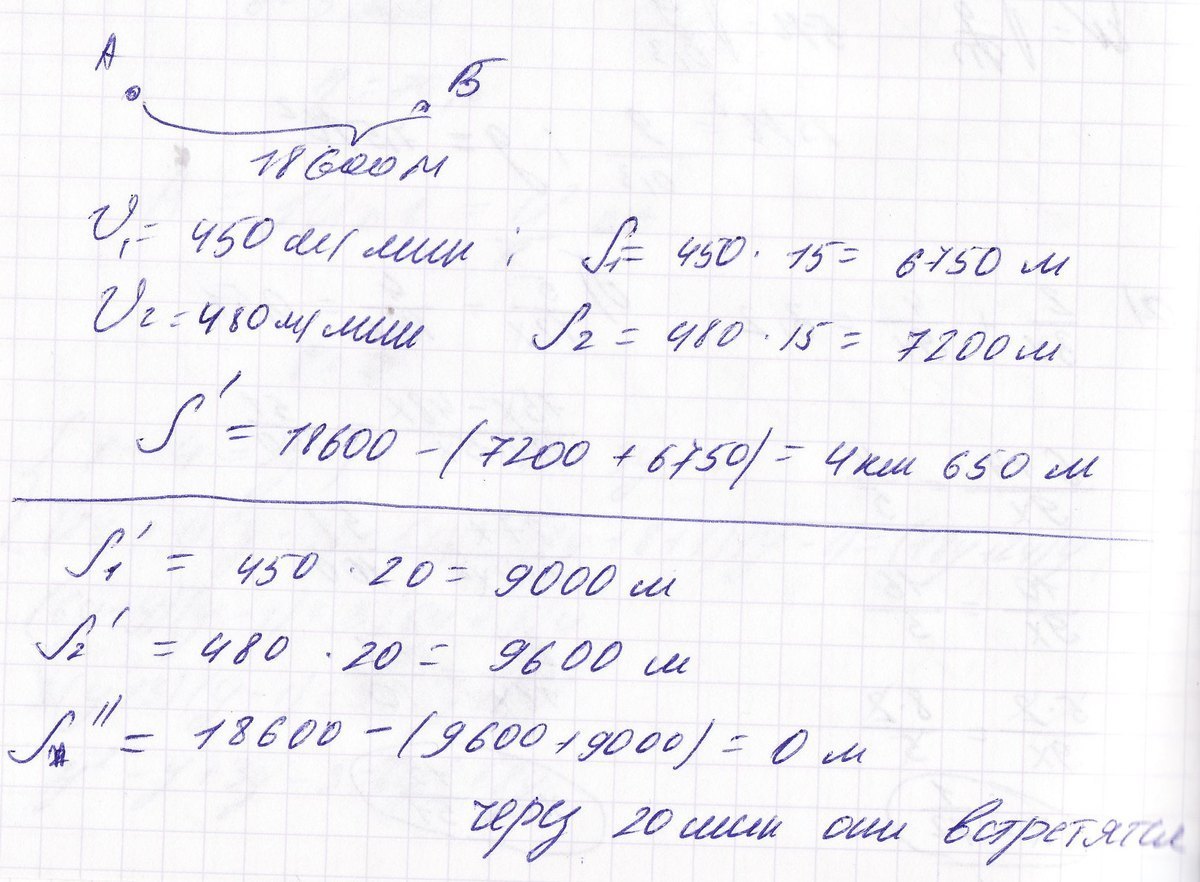 А
Б
18600 м
V₁ = 450 м/мин ; S₁ = 450 · 15 = 6750 м
V₂ = 480 м/мин S₂ = 480 · 15 = 7200 м
S' = 18600 - (7200 + 6750) = 4 км 650 м
S₁' = 450 · 20 = 9000 м
S₂' = 480 · 20 = 9600 м
S'' = 18600 - (9600 + 9000) = 0 м
через 20 мин они встретятся